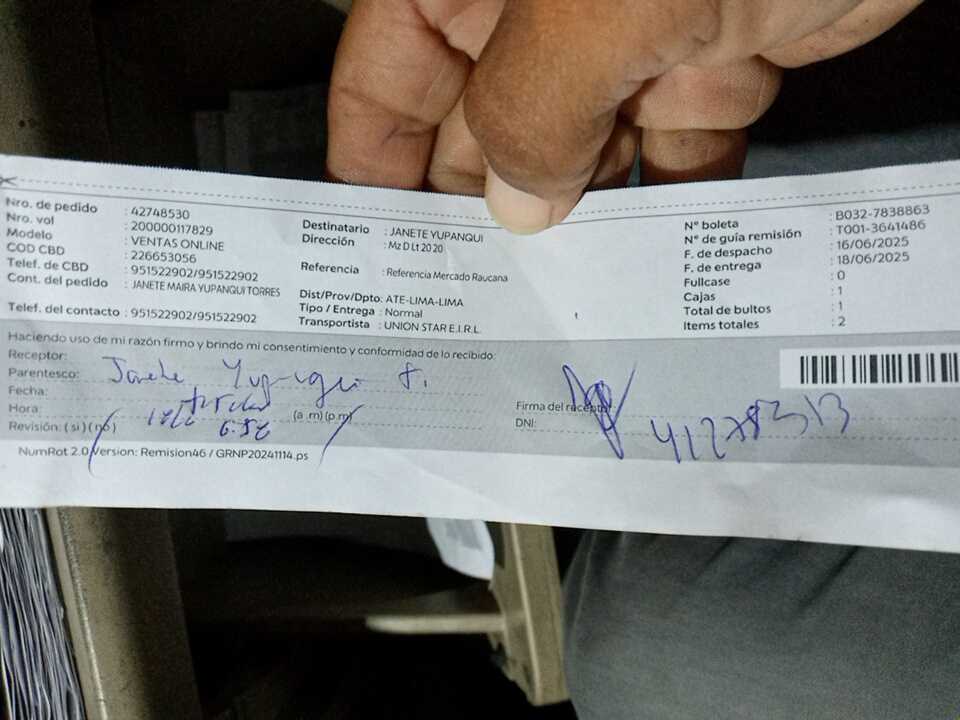 Nro. de pedido : 42748530
Nro. vol : 200000117829
Modelo : VENTAS ONLINE
COD CBD : 226653056
Telef. de CBD : 951522902/951522902
Cont. del pedido : JANETE MAIRA YUPANQUI TORRES
Telef. del contacto : 951522902/951522902
Destinatario : JANETE YUPANQUI
Dirección : Mz D Lt 20 20
Referencia : Referencia Mercado Raucana
Dist/Prov/Dpto: ATE-LIMA-LIMA
Tipo / Entrega : Normal
Transportista : UNION STAR E.I.R.L.
N° boleta : B032-7838863
N° de guía remisión : T001-3641486
F. de despacho : 16/06/2025
F. de entrega : 18/06/2025
Fullcase : 0
Cajas : 1
Total de bultos : 1
Items totales : 2
Haciendo uso de mi razón firmo y brindo mi consentimiento y conformidad de lo recibido:
Receptor: Janete Yupanqui T.
Parentesco:
Fecha:
Hora: 6:58 (a .m) (p.m)
Revisión: ( si ) ( no )
Firma del receptor
DNI: 41278313
NumRot 2.0 Version: Remision46 / GRNP20241114.ps